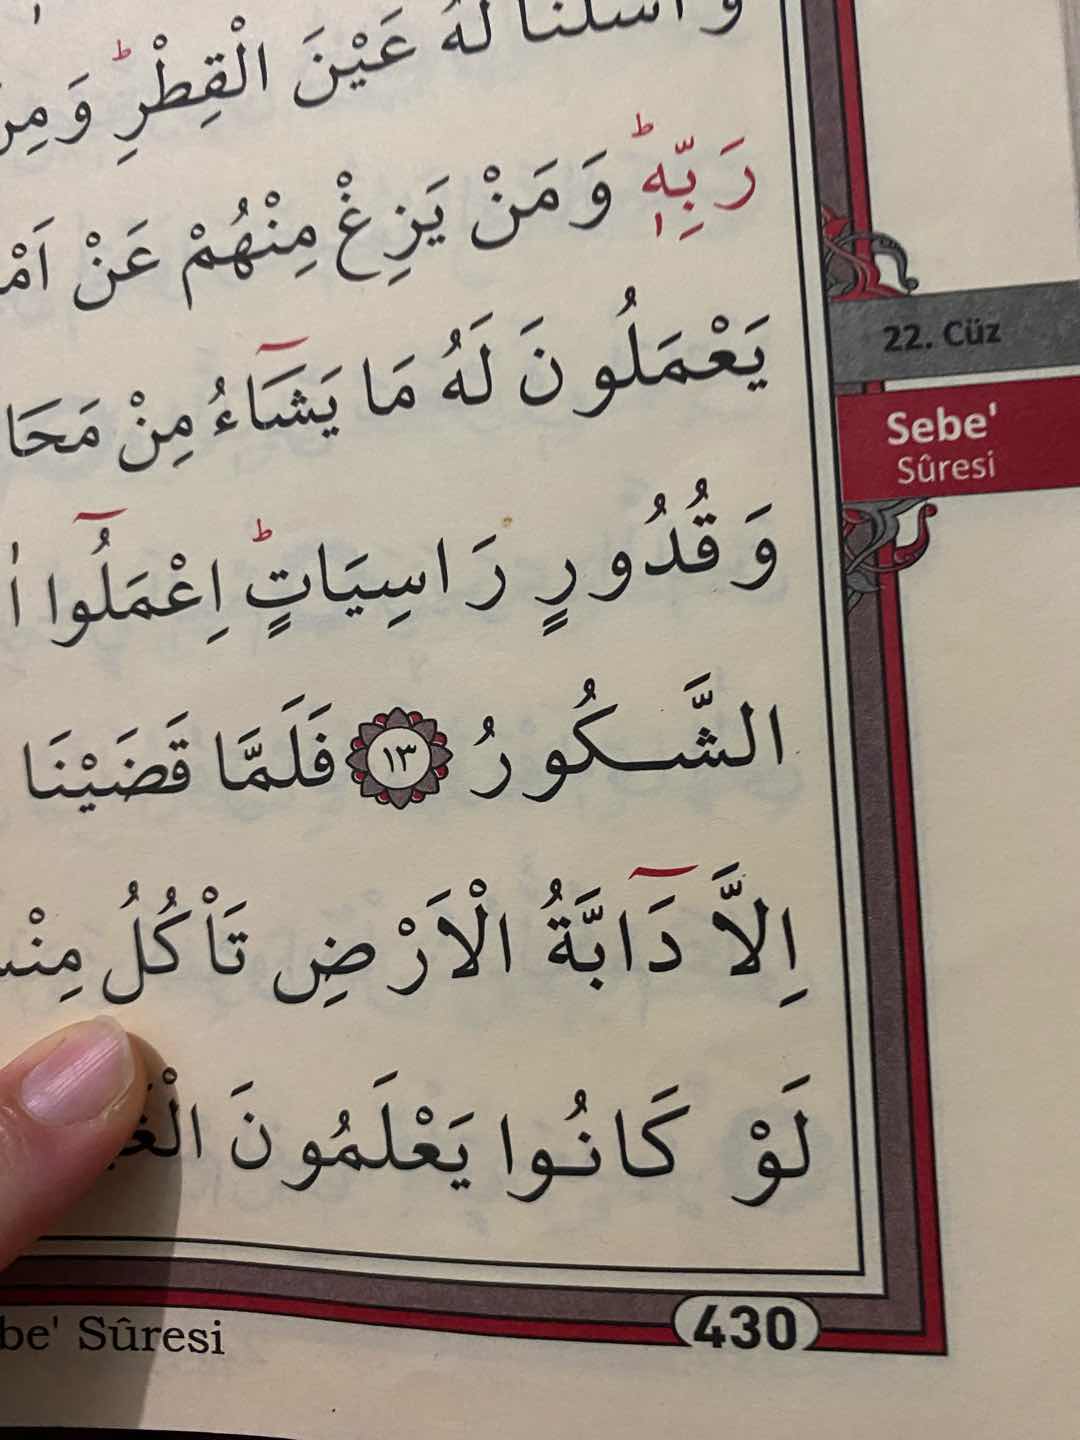 وَاَسَلْنَا لَهُ عَيْنَ الْقِطْرِۜ وَمِنَ
رَبِّه۪ۜ وَمَنْ يَزِغْ مِنْهُمْ عَنْ
يَعْمَلُونَ لَهُ مَا يَشَٓاءُ مِنْ
وَقُدُورٍ رَاسِيَاتٍۜ اِعْمَلُٓوا
الشَّكُورُ ﴿١٣﴾ فَلَمَّا قَضَيْنَا
اِلَّا دَٓابَّةُ الْاَرْضِ تَاْكُلُ
لَوْ كَانُوا يَعْلَمُونَ
22. Cüz
Sebe'
Sûresi
be' Sûresi
430